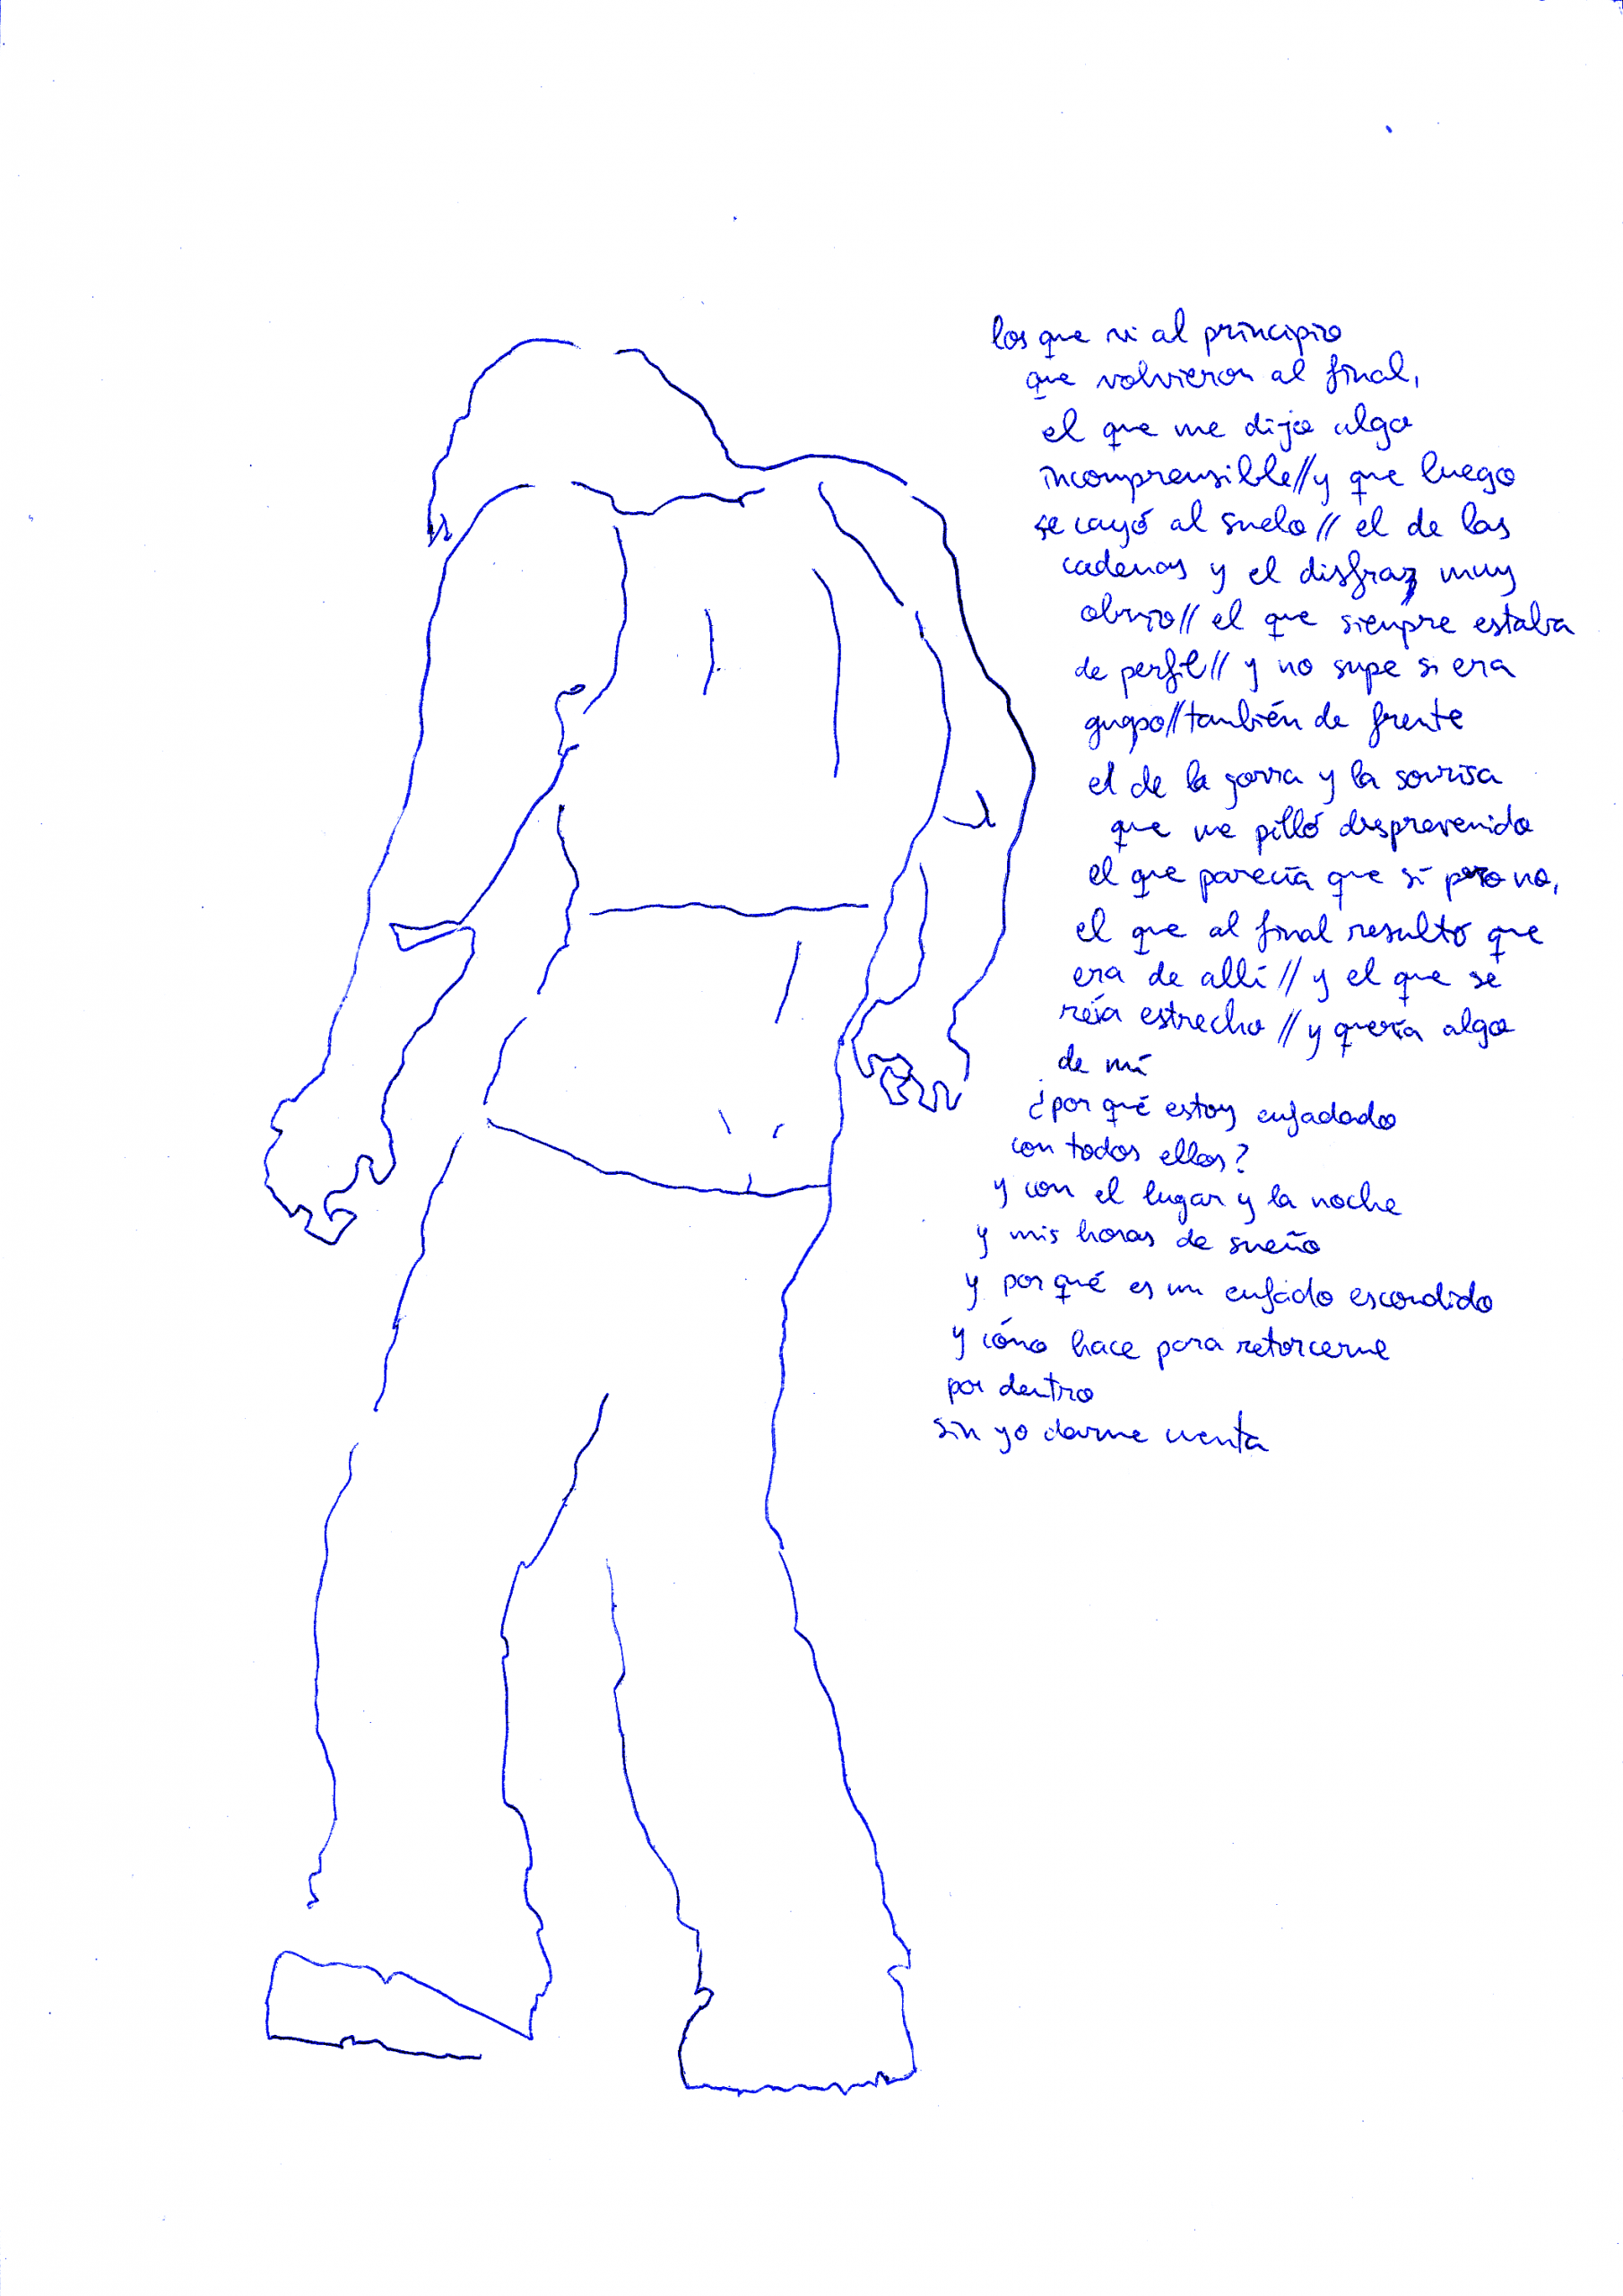 los que vi al principio
que volvieron al final,
el que me dijo algo
incomprensible//y que luego
se cayó al suelo // el de las
cadenas y el disfraz muy
obvio// el que siempre estaba
de perfil// y no supe si era
guapo//también de frente
el de la gorra y la sonrisa
que me pilló desprevenido
el que parecía que sí pero no,
el que al final resultó que
era de allí // y el que se
reía estrecho // y quería algo
de mí
¿por qué estoy enfadado
con todos ellos?
y con el lugar y la noche
y mis horas de sueño
y por qué es un enfado escondido
y cómo hace para retorcerme
por dentro
sin yo darme cuenta